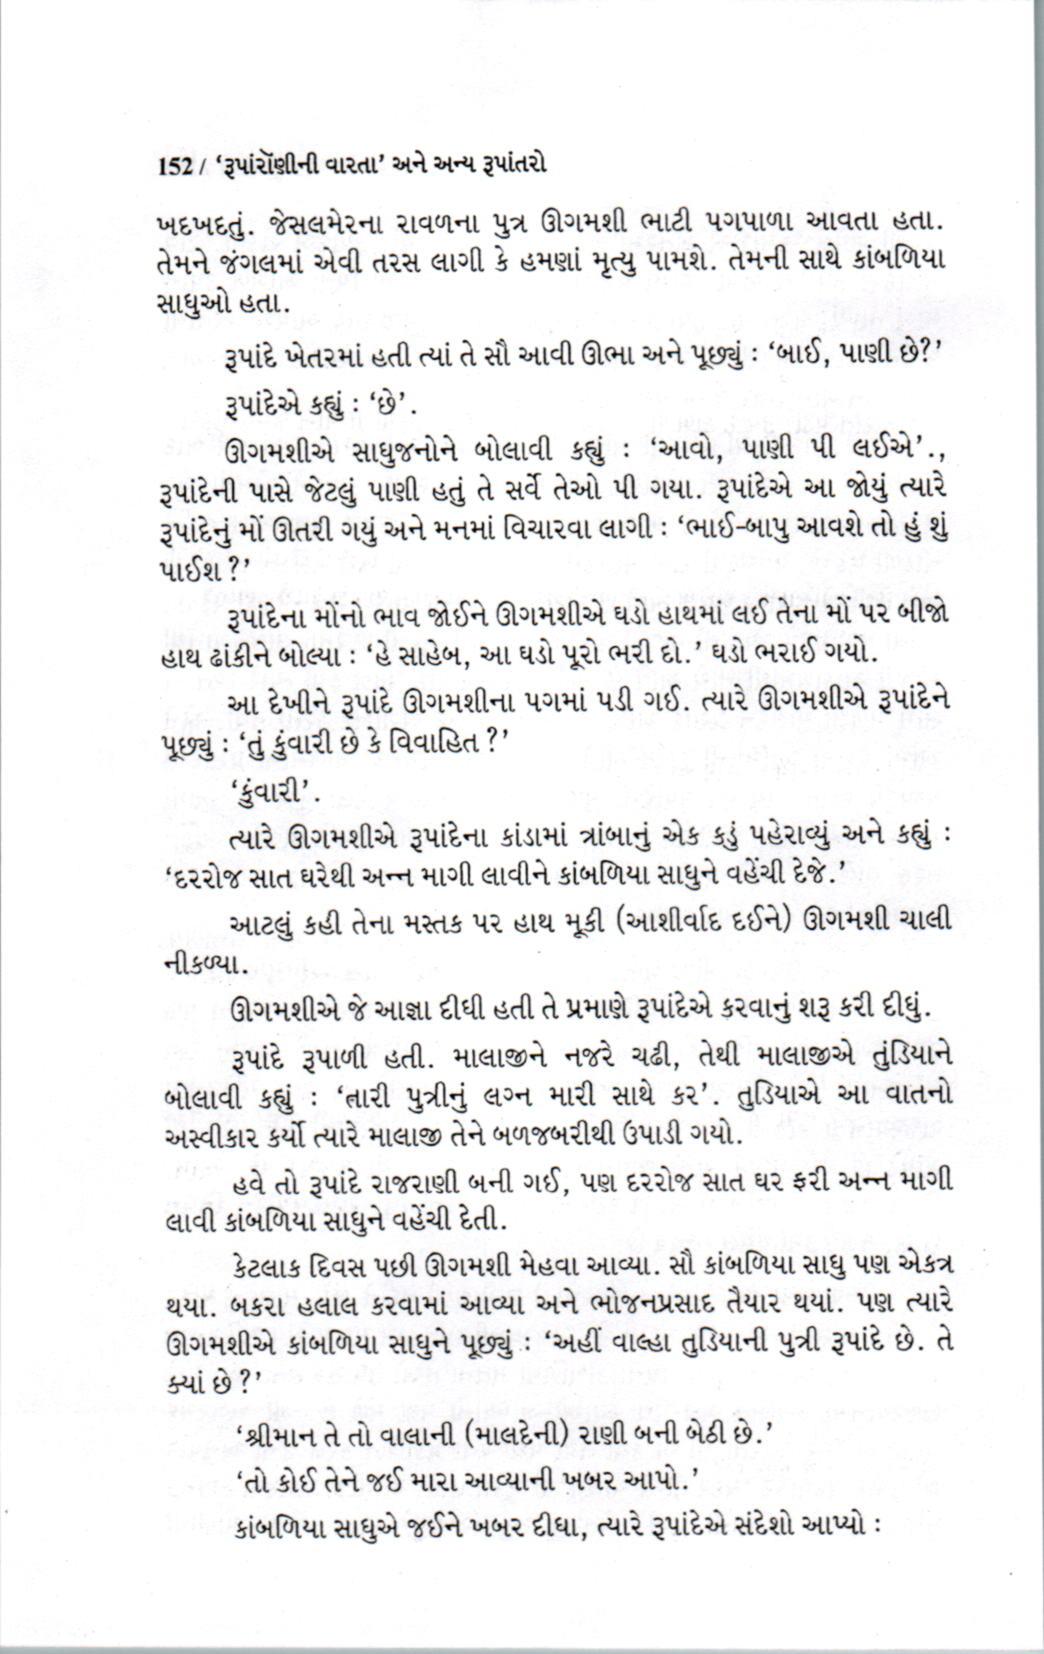 152 / ‘રૂપાંરૉણીની વારતા’ અને અન્ય રૂપાંતરો
ખદખદતું. જેસલમેરના રાવળના પુત્ર ઊગમશી ભાટી પગપાળા આવતા હતા.
તેમને જંગલમાં એવી તરસ લાગી કે હમણાં મૃત્યુ પામશે. તેમની સાથે કાંબળિયા
સાધુઓ હતા.
રૂપાંદે ખેતરમાં હતી ત્યાં તે સૌ આવી ઊભા અને પૂછ્યું : ‘બાઈ, પાણી છે?’
રૂપાંદેએ કહ્યું : ‘છે’.
ઊગમશીએ સાધુજનોને બોલાવી કહ્યું : ‘આવો, પાણી પી લઈએ’.,
રૂપાંદેની પાસે જેટલું પાણી હતું તે સર્વે તેઓ પી ગયા. રૂપાંદેએ આ જોયું ત્યારે
રૂપાંદેનું મોં ઊતરી ગયું અને મનમાં વિચારવા લાગી : ‘ભાઈ-બાપુ આવશે તો હું શું
પાઈશ ?’
રૂપાંદેના મોંનો ભાવ જોઈને ઊગમશીએ ઘડો હાથમાં લઈ તેના મોં પર બીજો
હાથ ઢાંકીને બોલ્યા : ‘હે સાહેબ, આ ઘડો પૂરો ભરી દો.’ ઘડો ભરાઈ ગયો.
આ દેખીને રૂપાંદે ઊગમશીના પગમાં પડી ગઈ. ત્યારે ઊગમશીએ રૂપાંદેને
પૂછ્યું : ‘તું કુંવારી છે કે વિવાહિત ?’
‘કુંવારી’.
ત્યારે ઊગમશીએ રૂપાંદેના કાંડામાં ત્રાંબાનું એક કડું પહેરાવ્યું અને કહ્યું :
‘દરરોજ સાત ઘરેથી અન્ન માગી લાવીને કાંબળિયા સાધુને વહેંચી દેજે.’
આટલું કહી તેના મસ્તક પર હાથ મૂકી (આશીર્વાદ દઈને) ઊગમશી ચાલી
નીકળ્યા.
ઊગમશીએ જે આજ્ઞા દીધી હતી તે પ્રમાણે રૂપાંદેએ કરવાનું શરૂ કરી દીધું.
રૂપાંદે રૂપાળી હતી. માલાજીને નજરે ચઢી, તેથી માલાજીએ તુંડિયાને
બોલાવી કહ્યું : ‘તારી પુત્રીનું લગ્ન મારી સાથે કર’. તુડિયાએ આ વાતનો
અસ્વીકાર કર્યો ત્યારે માલાજી તેને બળજબરીથી ઉપાડી ગયો.
હવે તો રૂપાંદે રાજરાણી બની ગઈ, પણ દરરોજ સાત ઘર ફરી અન્ન માગી
લાવી કાંબળિયા સાધુને વહેંચી દેતી.
કેટલાક દિવસ પછી ઊગમશી મેહવા આવ્યા. સૌ કાંબળિયા સાધુ પણ એકત્ર
થયા. બકરા હલાલ કરવામાં આવ્યા અને ભોજનપ્રસાદ તૈયાર થયાં. પણ ત્યારે
ઊગમશીએ કાંબળિયા સાધુને પૂછ્યું : ‘અહીં વાલ્હા તુડિયાની પુત્રી રૂપાંદે છે. તે
ક્યાં છે ?’
‘શ્રીમાન તે તો વાલાની (માલદેની) રાણી બની બેઠી છે.’
‘તો કોઈ તેને જઈ મારા આવ્યાની ખબર આપો.’
કાંબળિયા સાધુએ જઈને ખબર દીધા, ત્યારે રૂપાંદેએ સંદેશો આપ્યો :